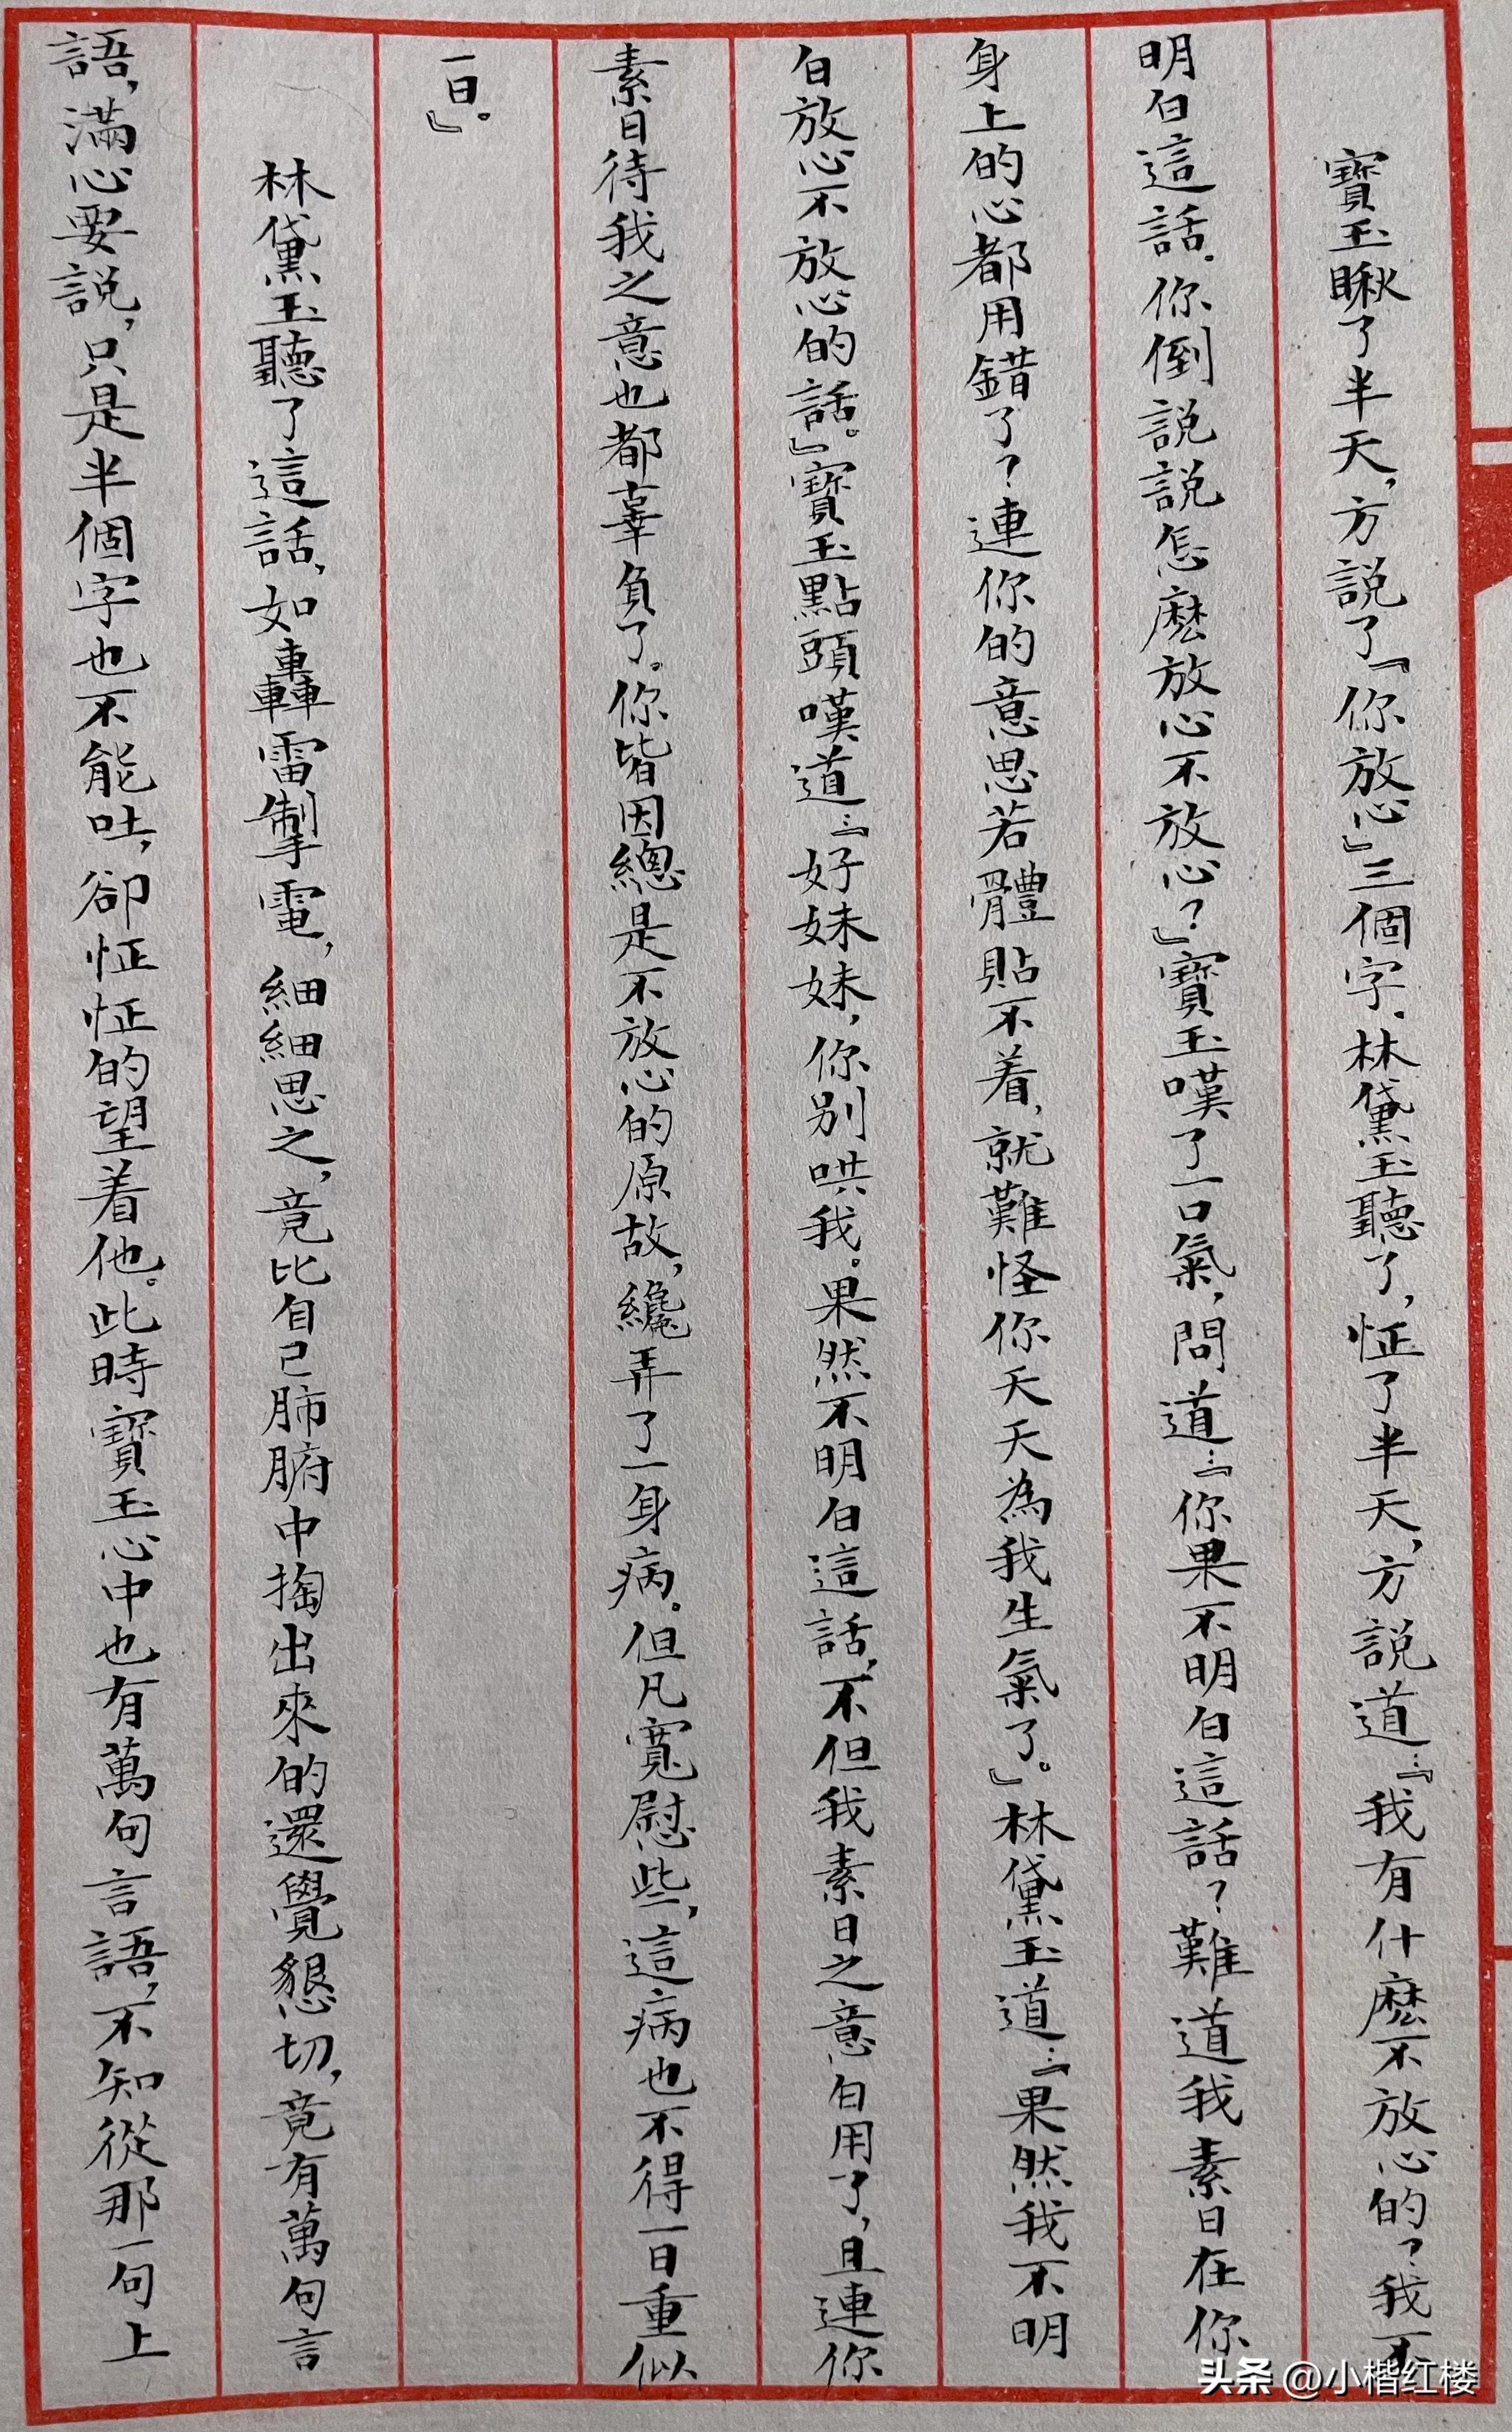 寶玉瞅了半天，方説了『你放心』三個字。林黛玉聽了，怔了半天，方説道：『我有什麽不放心的？我不
明白這話。你倒説説怎麽放心不放心？』寶玉嘆了一口氣，問道：『你果不明白這話？難道我素日在你
身上的心都用錯了？連你的意思若體貼不着，就難怪你天天為我生氣了。』林黛玉道：『果然我不明
白放心不放心的話。』寶玉點頭嘆道：『好妹妹，你别哄我。果然不明白這話，不但我素日之意白用了，且連你
素日待我之意也都辜負了。你皆因總是不放心的原故，纔弄了一身病。但凡寬慰些，這病也不得一日重似
一日。』
林黛玉聽了這話，如轟雷掣電，細細思之，竟比自己肺腑中掏出來的還覺懇切，竟有萬句言
語，滿心要説，只是半個字也不能吐，卻怔怔的望着他。此時寶玉心中也有萬句言語，不知從那一句上
头条 @小楷红楼